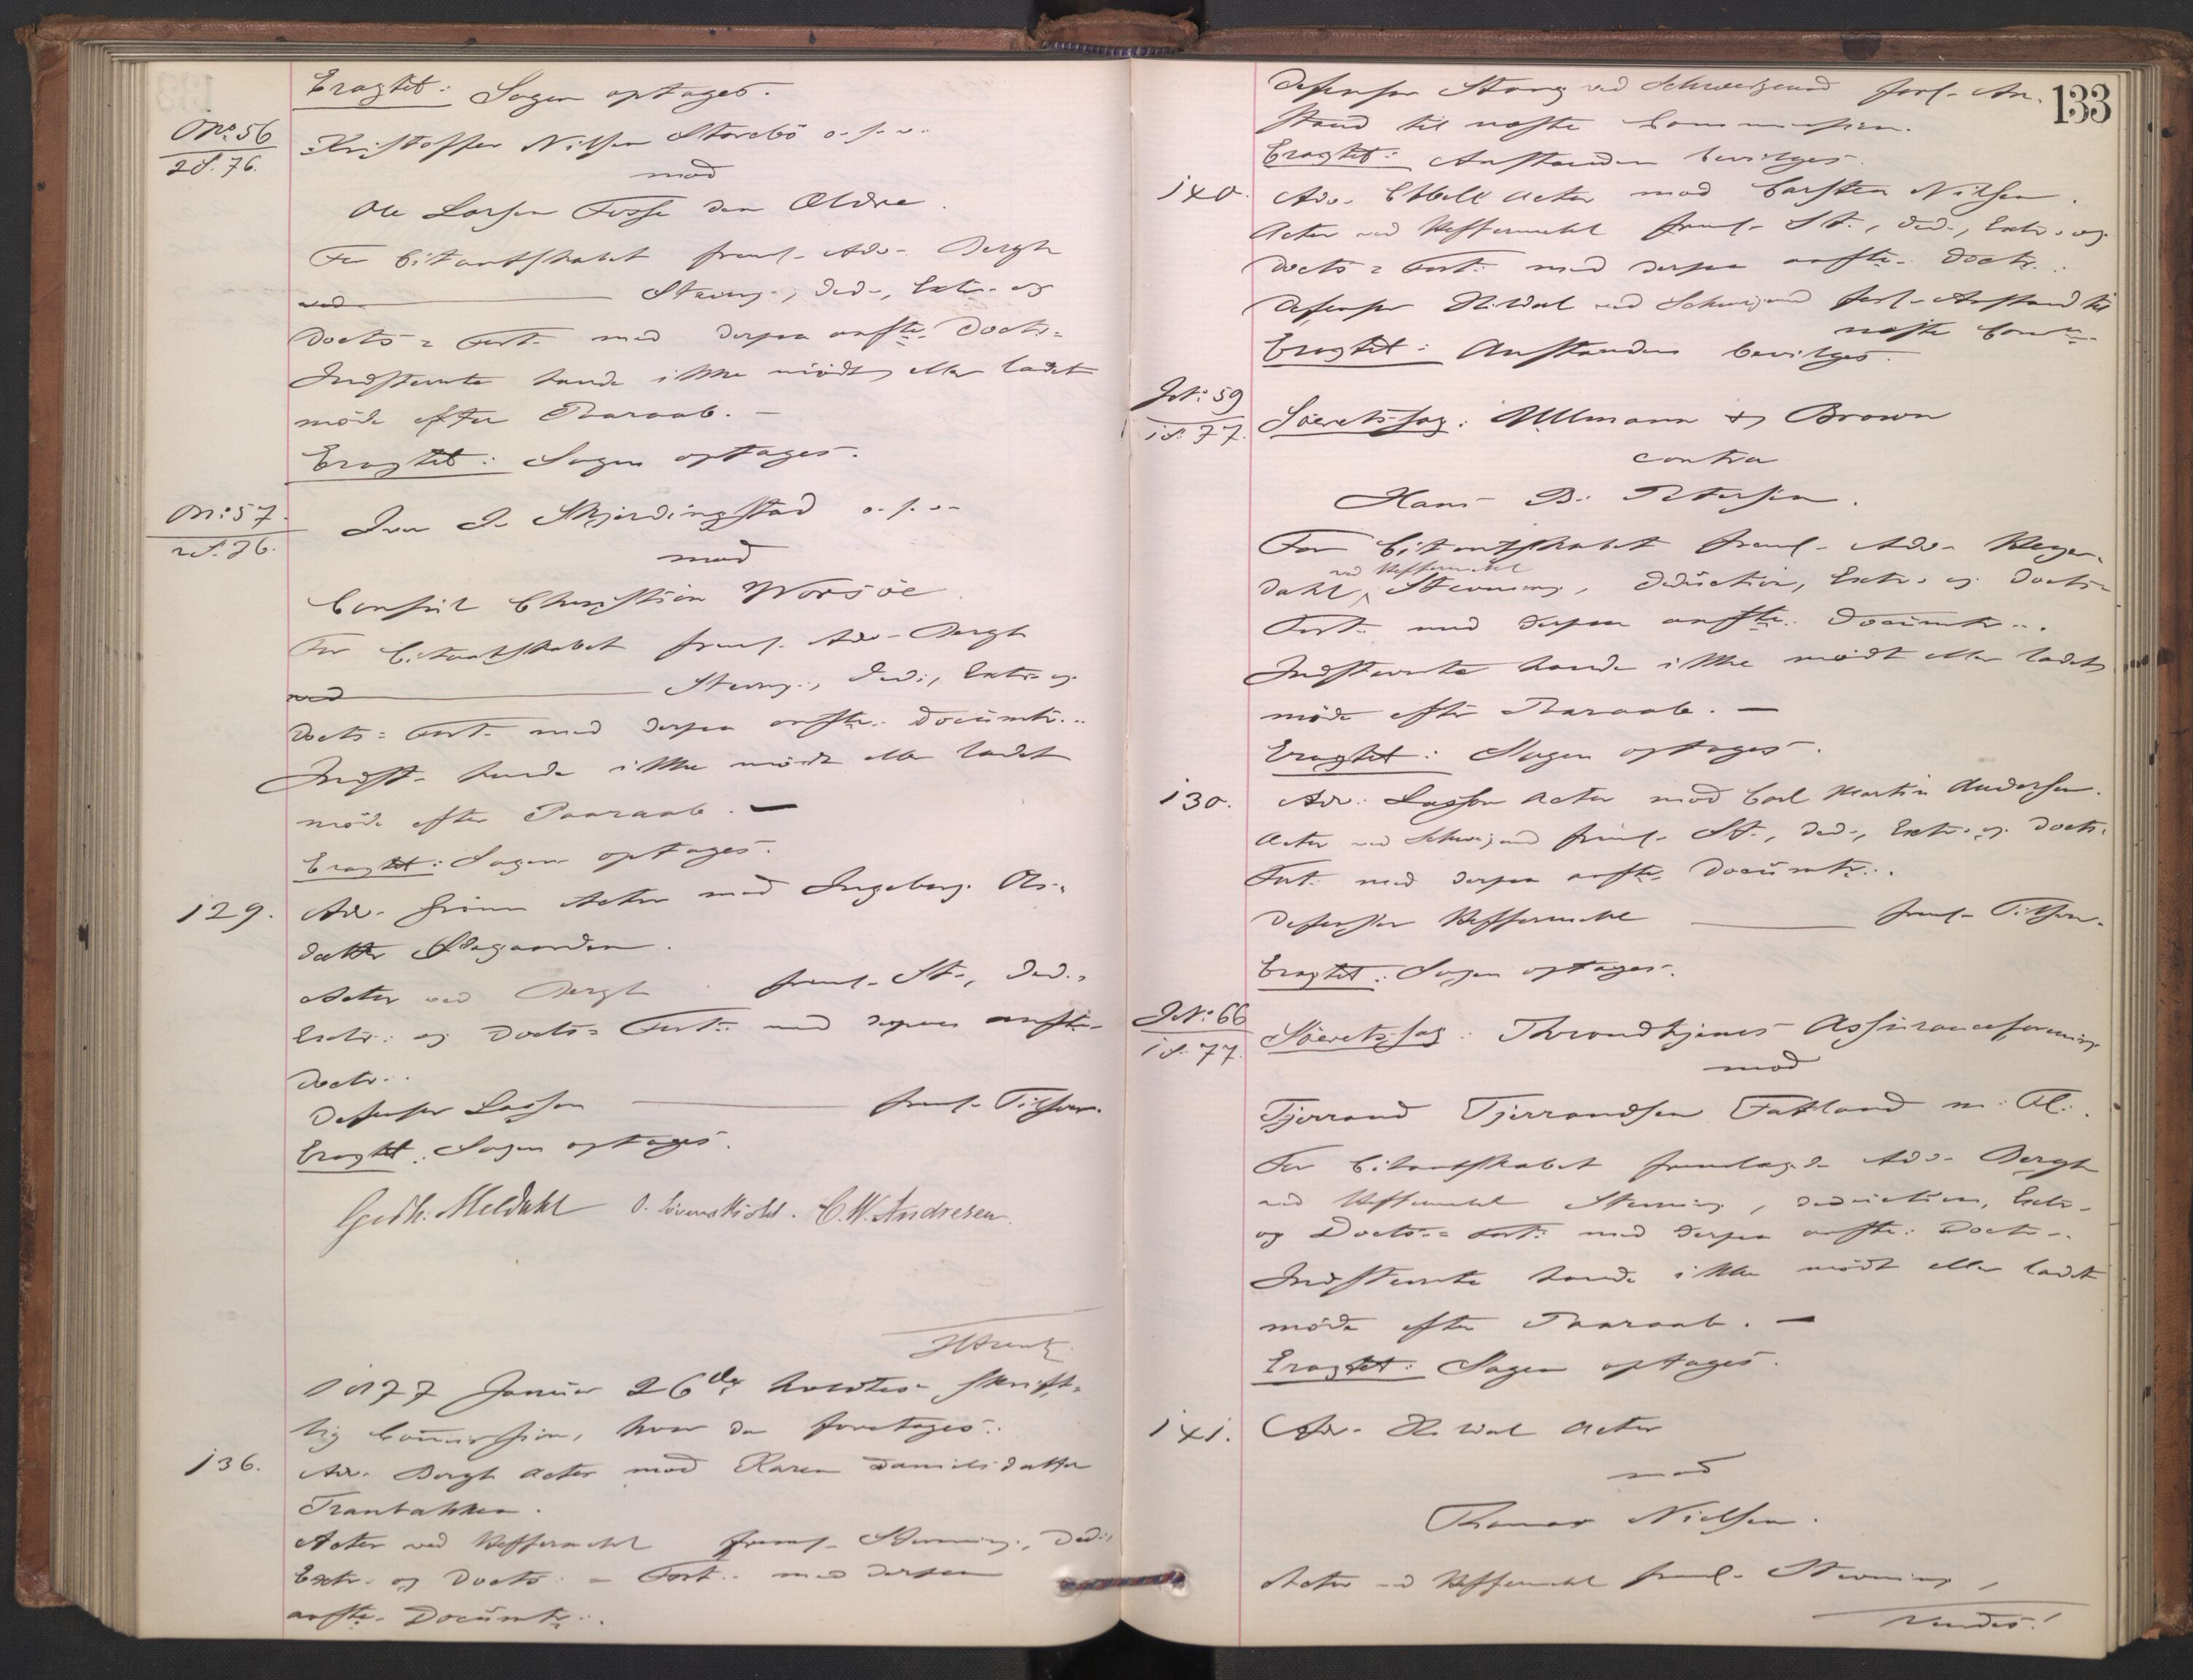 Eragtet: Sagen optages.
No. 56
2 S. 76.
Kristoffer Nilsen Storebö o. s. v.
mod
Ole Larsen Fosse den Ældre.
For Citantskabet freml. Adv. Bergh
ved Stevng., Ded., Extr. og
Docts = Fort. med derpaa anfte. Doctr.
Indstevnte havde ikke mödt eller ladet
möde efter Paaraab. —
Eragtet: Sagen optages.
No. 57.
2 S. 76.
Iver I. Skjerdingstad o. s. v.
mod
Consul Christian Worsöe.
For Citantskabet freml. Adv. Bergh
ved Stevng., Ded., Extr. og
Docts = Fort. med derpaa anfte. Documtr.
Indst. havde ikke mödt eller ladet
möde efter Paaraab. —
Eragtet: Sagen optages.
129.
Adv. Actor mod Ingeborg Ols-
datter
Actor ved Bergh freml. St., Ded.,
Extr. og Docts = Fort. med derpaa anfte.
Doctr.
Defensor Lasson freml. Tilsvar.
Eragtet: Sagen optages.
Gedh. Meldahl O. Lövenskiold. C. W. Andresen.
1877 Januar 26de holdtes skrift-
lig Commission, hvor da foretoges:
136.
Adv. Bergh Actor mod Karen Danielsdatter
Tranbakken.
Actor ved Heffermehl freml. Stevning, Ded.,
Extr. og Docts = Fort. med derpaa
anfte. Documtr.
133
Defensor Stang ved Schweigaard forl. An-
stand til næste Commission.
Eragtet: Anstanden bevilges.
140.
Adv. Actor mod Carsten Nilsen.
Actor ved Heffermehl freml. St., Ded., Extr. og
Docts = Fort. med derpaa anfte. Doctr.
Defensor ved Schweigaard forl. Anstand til
næste Comm.
Eragtet: Anstanden bevilges.
J. No. 59
1 S. 77.
Söeretssag: Ullmann & Brown
contra
Hans B. Petersen.
For Citantskabet freml. Adv. Heyer-
ved Heffermehl
dahl Stevning, Deduction, Extr. og Docts =
Fort. med derpaa anfte. Documtr.
Indstevnte havde ikke mödt eller ladet
möde efter Paaraab. —
Eragtet: Sagen optages.
130.
Adv. Lasson Actor mod Carl Martin Andersen.
Actor ved Schweigaard freml. St., Ded., Extr. og Docts =
Fort. med derpaa anfte. Documtr.
Defensor Heffermehl freml. Tilsvar.
Eragtet: Sagen optages.
J. No. 66
1 S. 77.
Söeretssag: Throndhjems Assuranceforening
mod
Tjerrand Tjerrandsen Fatland m. Fl.
For Citantskabet fremlagde Adv. Bergh
ved Heffermehl Stevning, Deduction, Extr.
og Docts = Fort. med derpaa anfte. Doctr.
Indstevnte havde ikke mödt eller ladet
möde efter Paaraab. —
Eragtet: Sagen optages.
141.
Adv. Actor
mod
Thomas Nielsen.
Actor ved Heffermehl freml. Stevning,
Vendes!